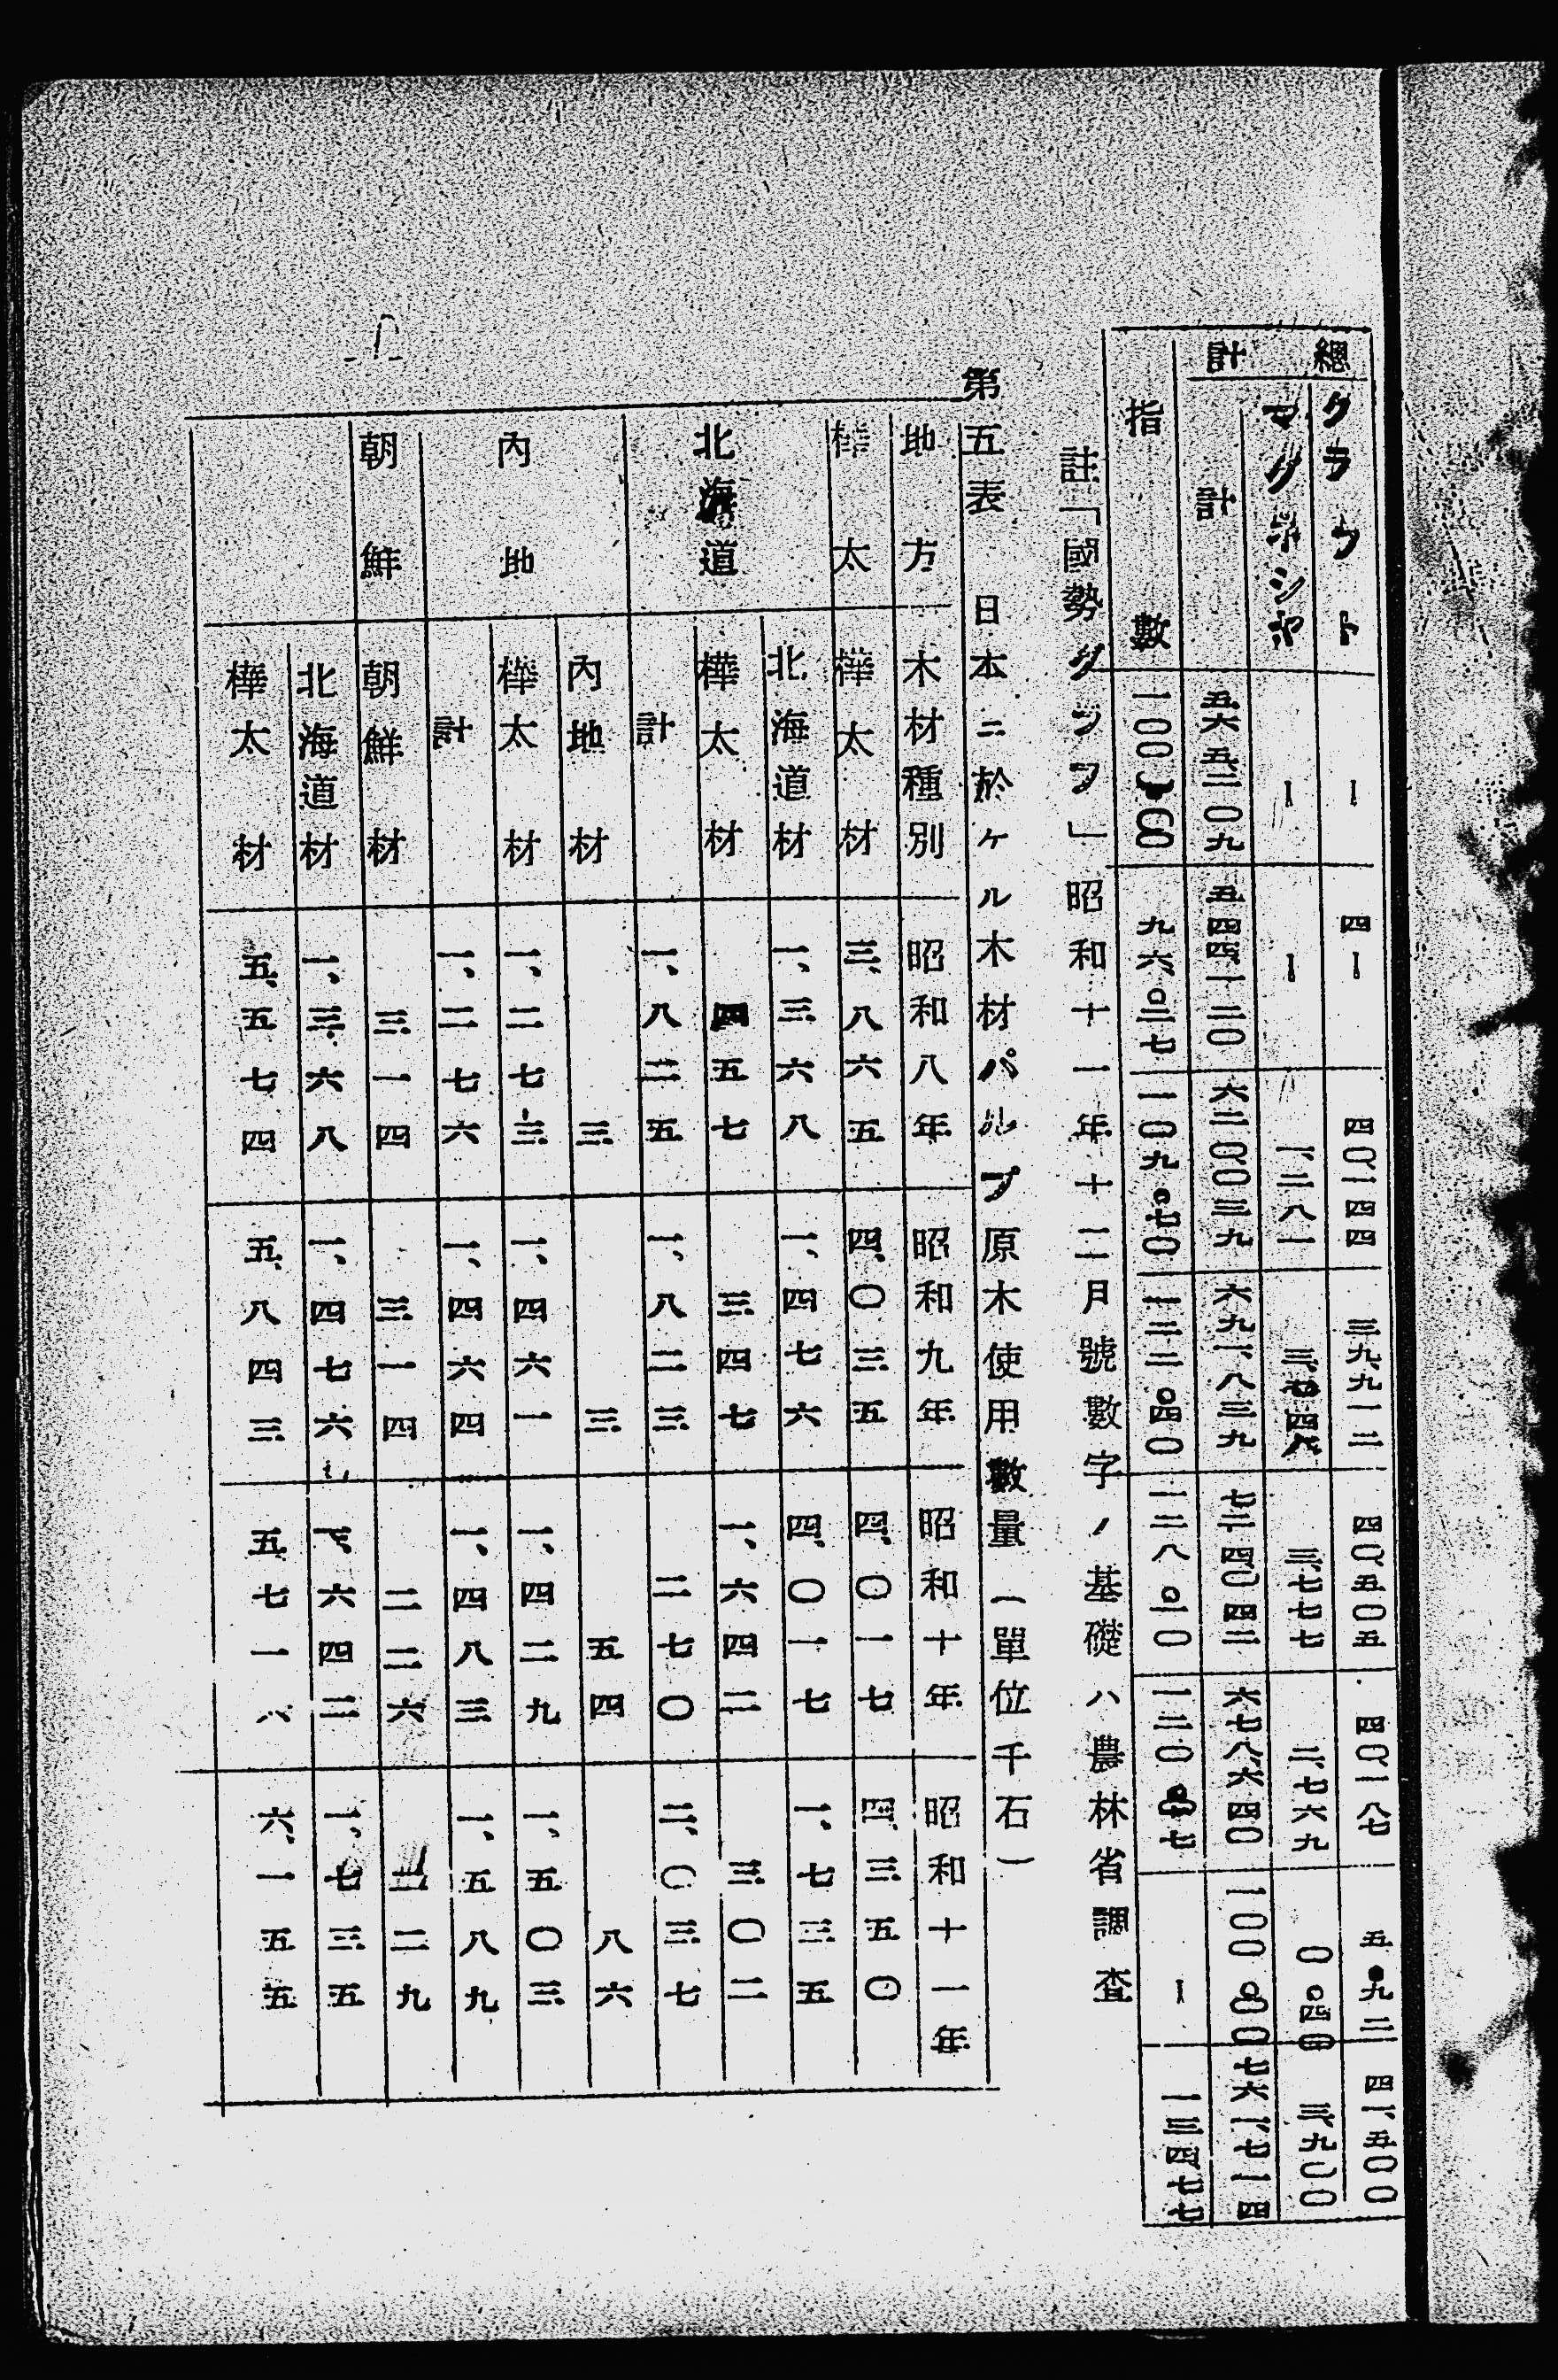 總計
クラフト ｜ 四｜ 四〇、一四四 三九、九一二 四〇、五〇五 四〇、一八七 五●九二 四一、五〇〇
マグネシヤ ｜ ｜ 一、二八一 三、七四八 三、七七七 二、七六九 〇〇四 三、九〇〇
計 五六五、二〇九 五四四、一二〇 六二〇、〇三九 六九一、八三九 七二四、〇四二 六七八、六四〇 一〇〇〇〇〇 七六一、七一四
指數 九六〇三七 一〇九〇七〇 一二二〇四〇 一二八〇一〇 ｜ 一三四七七
註「國勢グラフ」昭和十一年十二月號數字ノ基礎ハ農林省調査
第五表 日本ニ於ケル木材パルプ原木使用數量（單位千石）
地方 木材種別 昭和八年 昭和九年 昭和十年 昭和十一年
樺太 樺太材 三、八六五 四、〇三五 四、〇一七 四、三五〇
北海道 北海道材 一、三六八 一、四七六 四、〇一七 一、七三五
樺太材 四五七 三四七 一、六四二 三〇二
計 一、八二五 一、八二三 二七〇 二、〇三七
內地 內地材 三 三 五四 八六
樺太材 一、二七三 一、四六一 一、四二九 一、五〇三
計 一、二七六 一、四六四 一、四八三 一、五八九
朝鮮 朝鮮材 三一四 三一四 二二六 二二九
北海道材 一、三六八 一、四七六 六四二 一、七三五
樺太材 五、五七四 五、八四三 五七一六 六、一五五